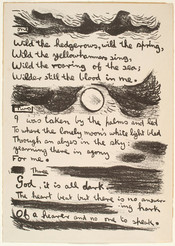 One
Wild the hedgerows, wild the spring,
Wild the yellowhammers sing,
Wild the roaring of the sea:
Wilder still the blood in me.
Two
I was taken by the palms and led
To where the lonely moon's white light bled
Through an abyss in the sky:
yearning there in agony
For me.
Three
God, it is all dark.
The heart beat but there is no answer
ing hark
Of a hearer and no one to speak.